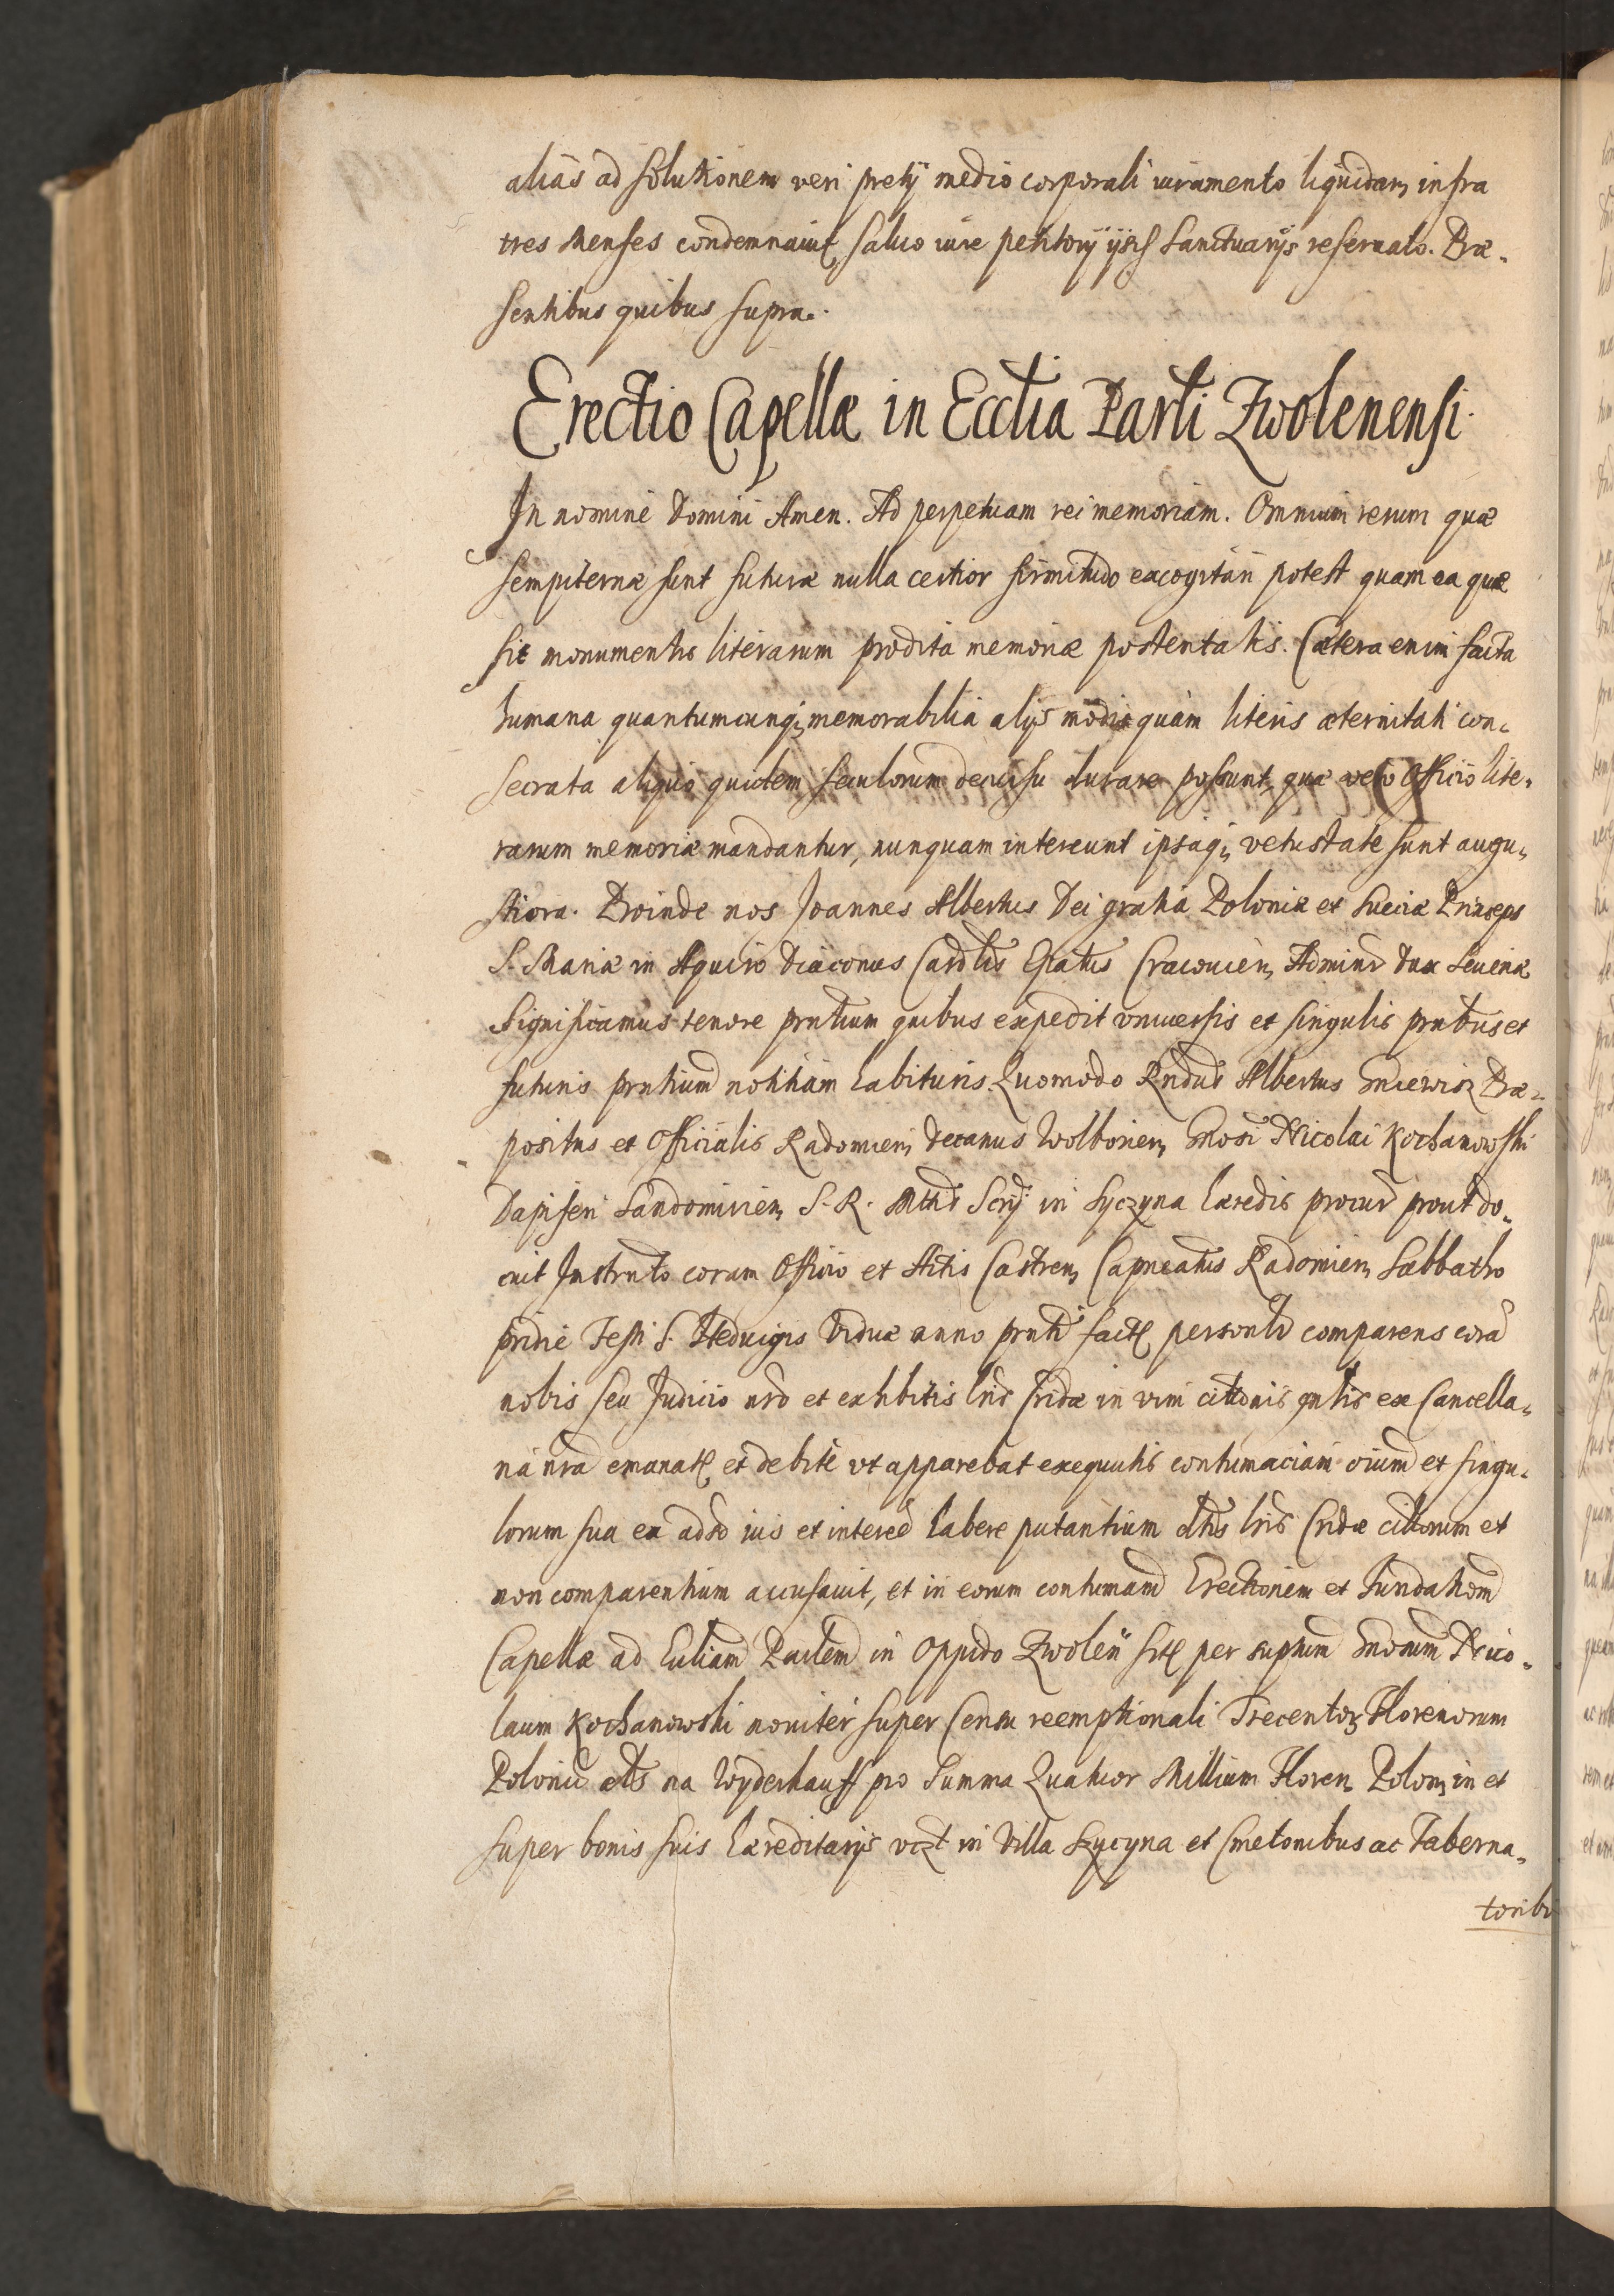 alias ad solutionem veri pretij medio corporali iuramento liquidan, infra
tres Menses condemnauit, saluo iure petitorij ijsd Sanctuarijs reseruato. Præ-
sentibus quibus supra.
Erectio Capellæ in Ecctia Parli Zwolenensi.
In nomine Domini Amen. Ad perpetuam rei memoriam. Omnium rerum quæ
sempiternæ sunt futuræ nulla certior firmitudo excogitari potest quam ea quæ
sit monumentis literarum prodita memoriæ posteritatis. Cætera enim facta
humana quantumcunq; memorabilia alijs modis quàm literis æternitati con-
secrata aliquo quidem seculorum decursu durare possunt, quæ vero Officio lite-
rarum memoriæ mandantur, nunquam intereunt ipsaq; vetustate sunt augu-
stiora. Proinde nos Joannes Albertus Dei gratia Poloniæ et Sueciæ Princeps
S. Mariæ in Aquiro Diaconus Cardlis Epatus Cracouien, Adminr Dux Seueriæ
Significamus tenore pntium quibus expedit vniuersis et singulis pntbus et
futuris pntium notitiam habituris. Quomodo Rndus Albertus Præ-
positus et Officialis Radomien, Decanus Wolborien, Gnosi Nicolai Kochanowski
Dapiferi Sandomirien, S. R. Mttis Scrij in Syczyna hæredis procur prout do-
cuit Instrnto coram Officio et Actis Castren, Capnealis Radomien, Sabbatho
pridie Festi S. Heduigis Viduæ anno pnti fact personlr comparens corã
nobis seu Judicio nro et exhibitis lris Cridæ in vim cittonis gnlis ex Cancella-
ria nra emanat et debitè vt apparebat exequutis contumaciam oium et singu-
lorum sua ea adso ius et interee habere putantium dtis lris Cridæ cittorum et
non comparentium accusauit, et in eorum contumam Erectionem et Fundationem
Capellæ ad Ecliam Parlem in Oppido Zwoleñ sit per suprum Gnosum Nico-
laum Kochanowski nouiter super Censu reemptionali Trecentor, Florenorum
Polonic als na Wyderkauff pro Summa Quatuor Millium Floren, Polon, in et
super bonis suis hæreditarijs vizt in Villa Syczyna et Cmetonibus ac Taberna-
torib